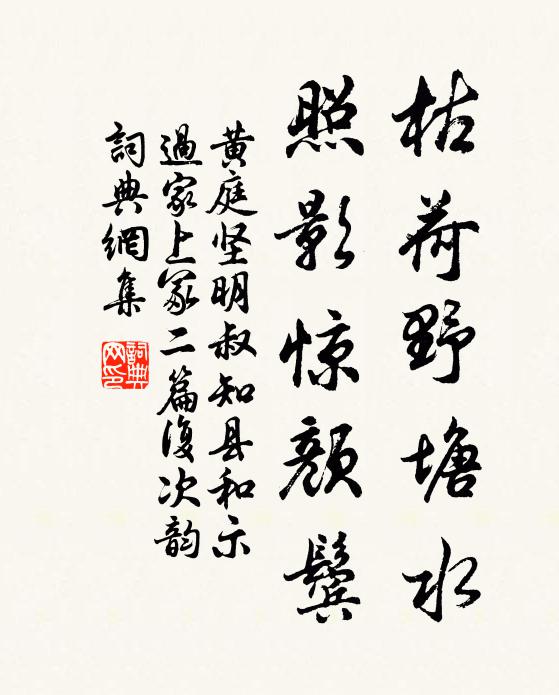 枯荷野塘水
照影惊颜鬓
黄庭坚明叔知县和示
過家上冢二篇復次韵
詞典網集
詞典
网印